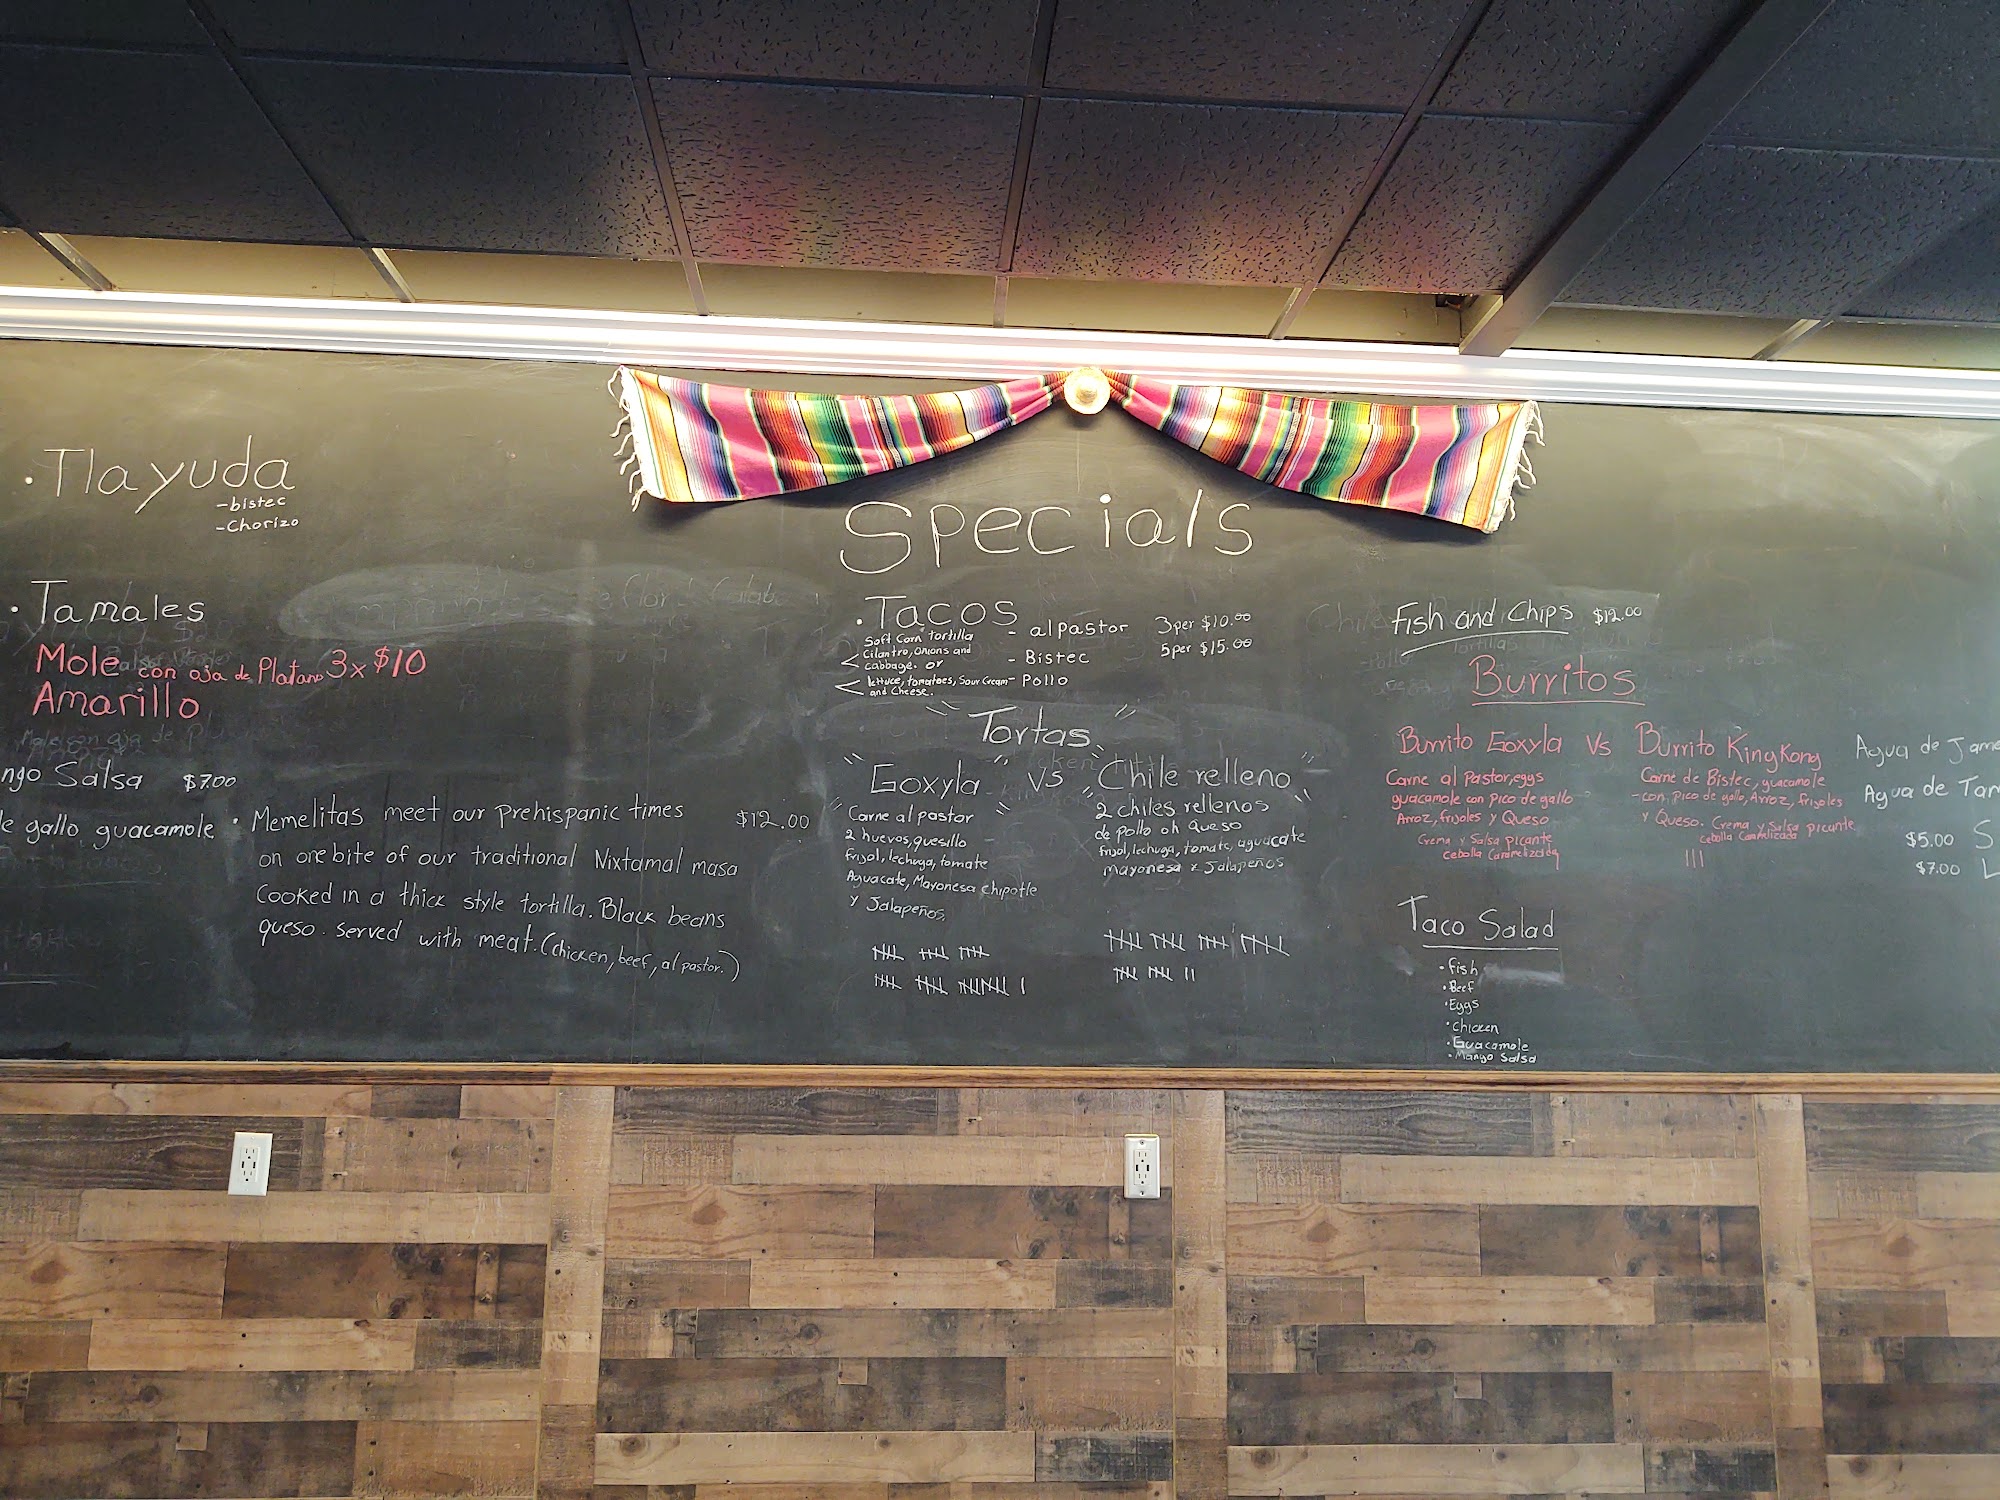 · Tlayuda
-bistec
-Chorizo
· Tamales
Mole con oja de Platano 3x $10
Amarillo
Salsa $7.00
gallo guacamole
· Memelitas meet our prehispanic times $12.00
on one bite of our traditional Nixtamal masa
Cooked in a thick style tortilla. Black beans
queso. served with meat. (chicken, beef, al pastor.)
Specials
· Tacos
Soft Corn tortilla
< Cilantro, onions and
cabbage. or
< lettuce, tomatoes, Sour Cream
and Cheese.
- al Pastor 3 per $10.00
- Bistec 5 per $15.00
- Pollo
"Tortas"
"Goxyla" vs "Chile relleno"
Carne al pastor
2 huevos, quesillo
frijol, lechuga, tomate
Aguacate, Mayonesa chipotle
y Jalapeños.
2 chiles rellenos
de pollo oh Queso
frijol, lechuga, tomate, aguacate
mayonesa y Jalapeños
Fish and Chips $12.00
Burritos
Burrito Goxyla Vs Burrito King Kong
Carne al Pastor, eggs
guacamole con pico de gallo
Arroz, frijoles y Queso
Crema y Salsa picante
Cebolla Caramelizada
Carne de Bistec, guacamole
-con Pico de gallo, Arroz, frijoles
y Queso. Crema y Salsa picante
Cebolla Caramelizada
Taco Salad
· fish
· Beef
· Eggs
· Chicken
· Guacamole
· Mango Salsa
Agua de
Agua de
$5.00 S
$7.00 L